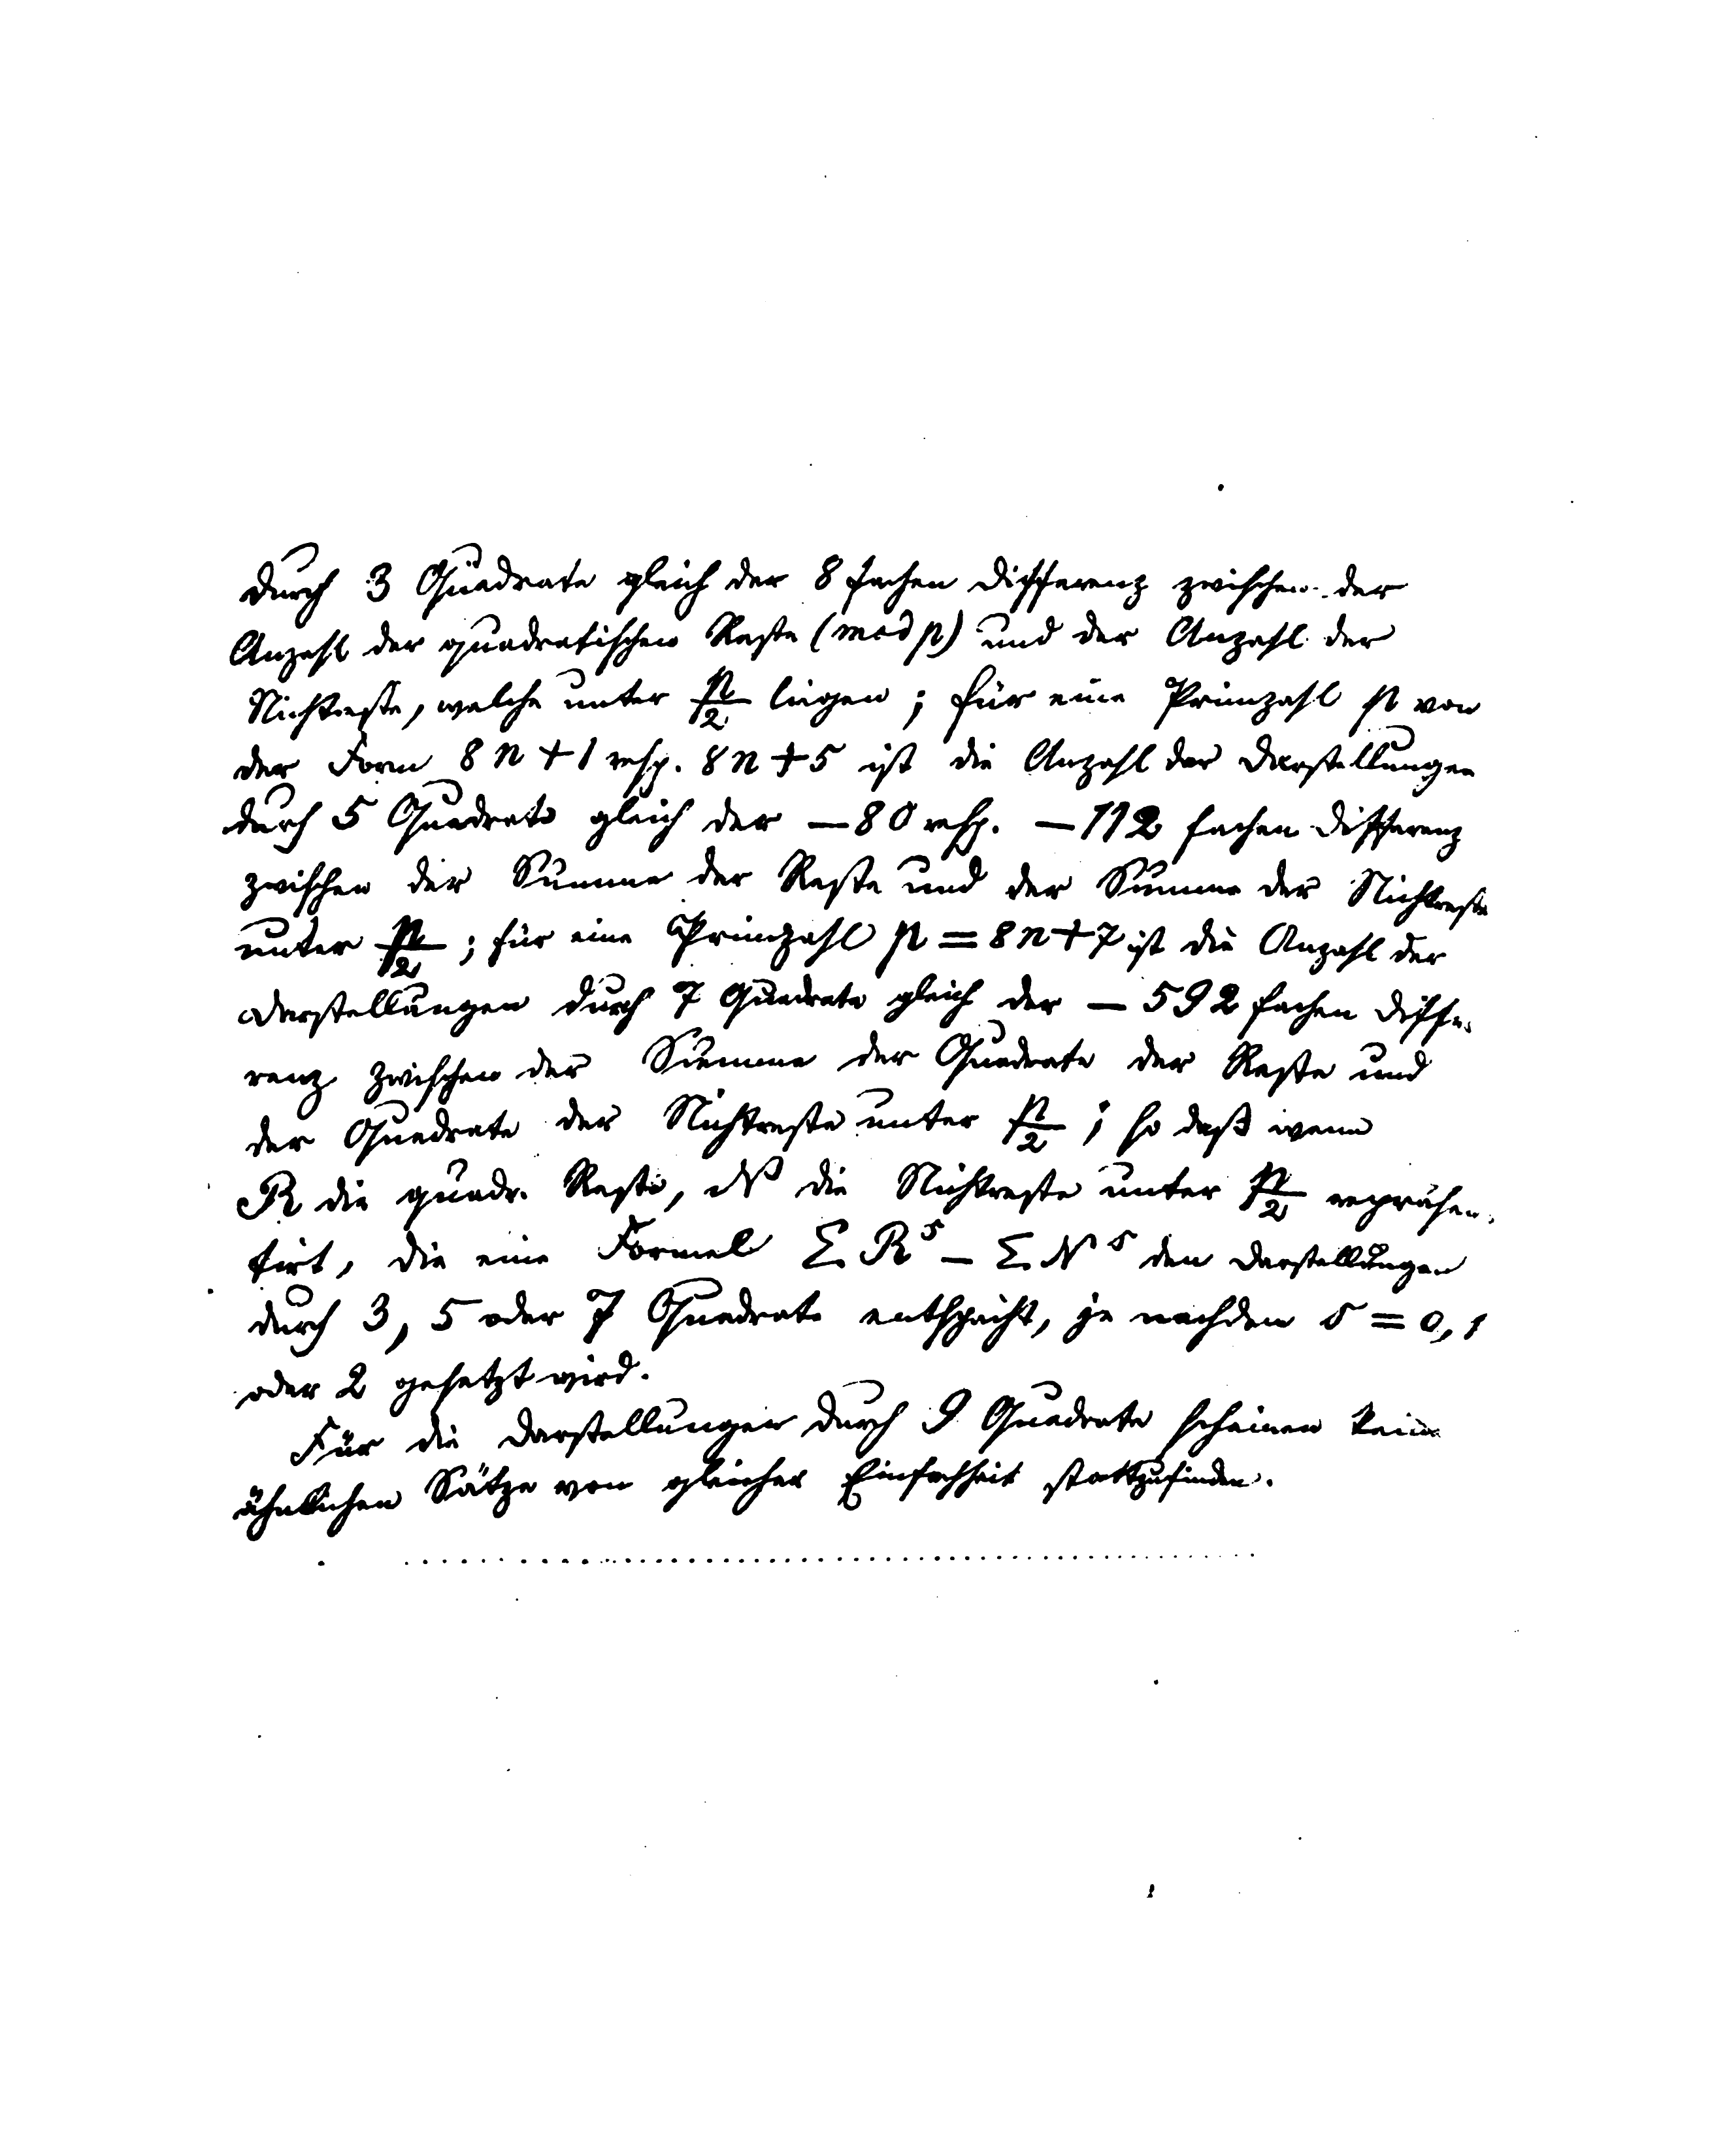 durch 3 Quadrate gleich der 8 fachen Differenz zwischen der
Anzahl der quadratischen Reste (mod p) und der Anzahl der
Nichtreste, welche unter p/2 liegen; für eine Primzahl p von
der Form 8n+1 resp. 8n+5 ist die Anzahl der Darstellungen
durch 5 Quadrate gleich der —80 resp. —112 fachen Differenz
zwischen der Summe der Reste und der Summe der Nichtreste
unter p/2; für eine Primzahl p = 8n+7 ist die Anzahl der
Darstellungen durch 7 Quadrate gleich der — 592 fachen Diffe-
renz zwischen der Summe der Quadrate der Reste und
der Quadrate der Nichtreste unter p/2; so daß wenn
R die quadr. Reste, N die Nichtreste unter p/2 repräsen-
tirt, die eine Formel Σ R^s — Σ N^s den Darstellungen
durch 3, 5 oder 7 Quadrate entspricht, je nachdem s = 0, 1
oder 2 gesetzt wird.
Für die Darstellungen durch 9 Quadrate scheinen keine
ähnlichen Sätze von gleicher Einfachheit stattzufinden.